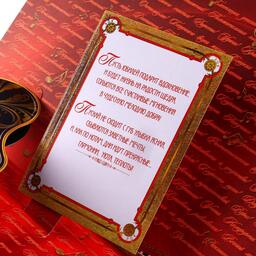 Пусть юбилей подарит вдохновение,
И будет жизнь на радости щедра,
Сольются все счастливые мгновения
В чудесную мелодию добра!
Пускай не сходит с губ улыбка ясная,
Сбываются заветные мечты,
И, как по нотам, дни идут прекрасные,
Гармонии, уюта, теплоты!